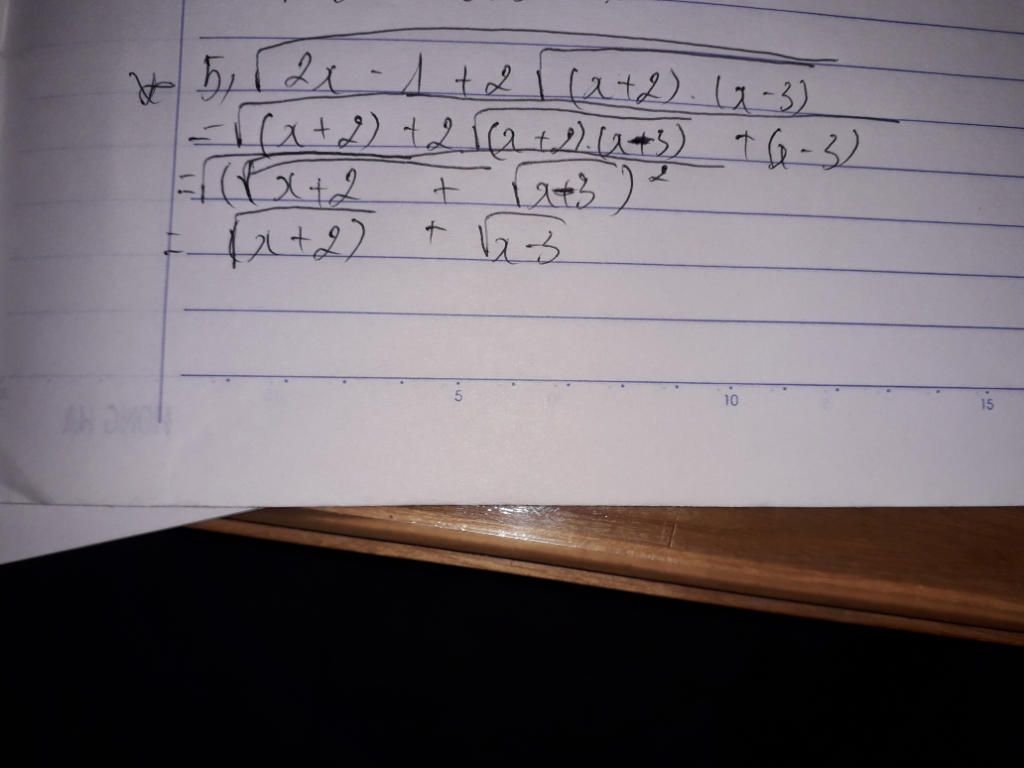 * 5, √(2x - 1 + 2√((x+2).(x-3)))
= √((x+2) + 2√((x+2).(x-3)) + (x-3))
= √((√(x+2) + √(x-3))²)
= √(x+2) + √(x-3)
5 10 15